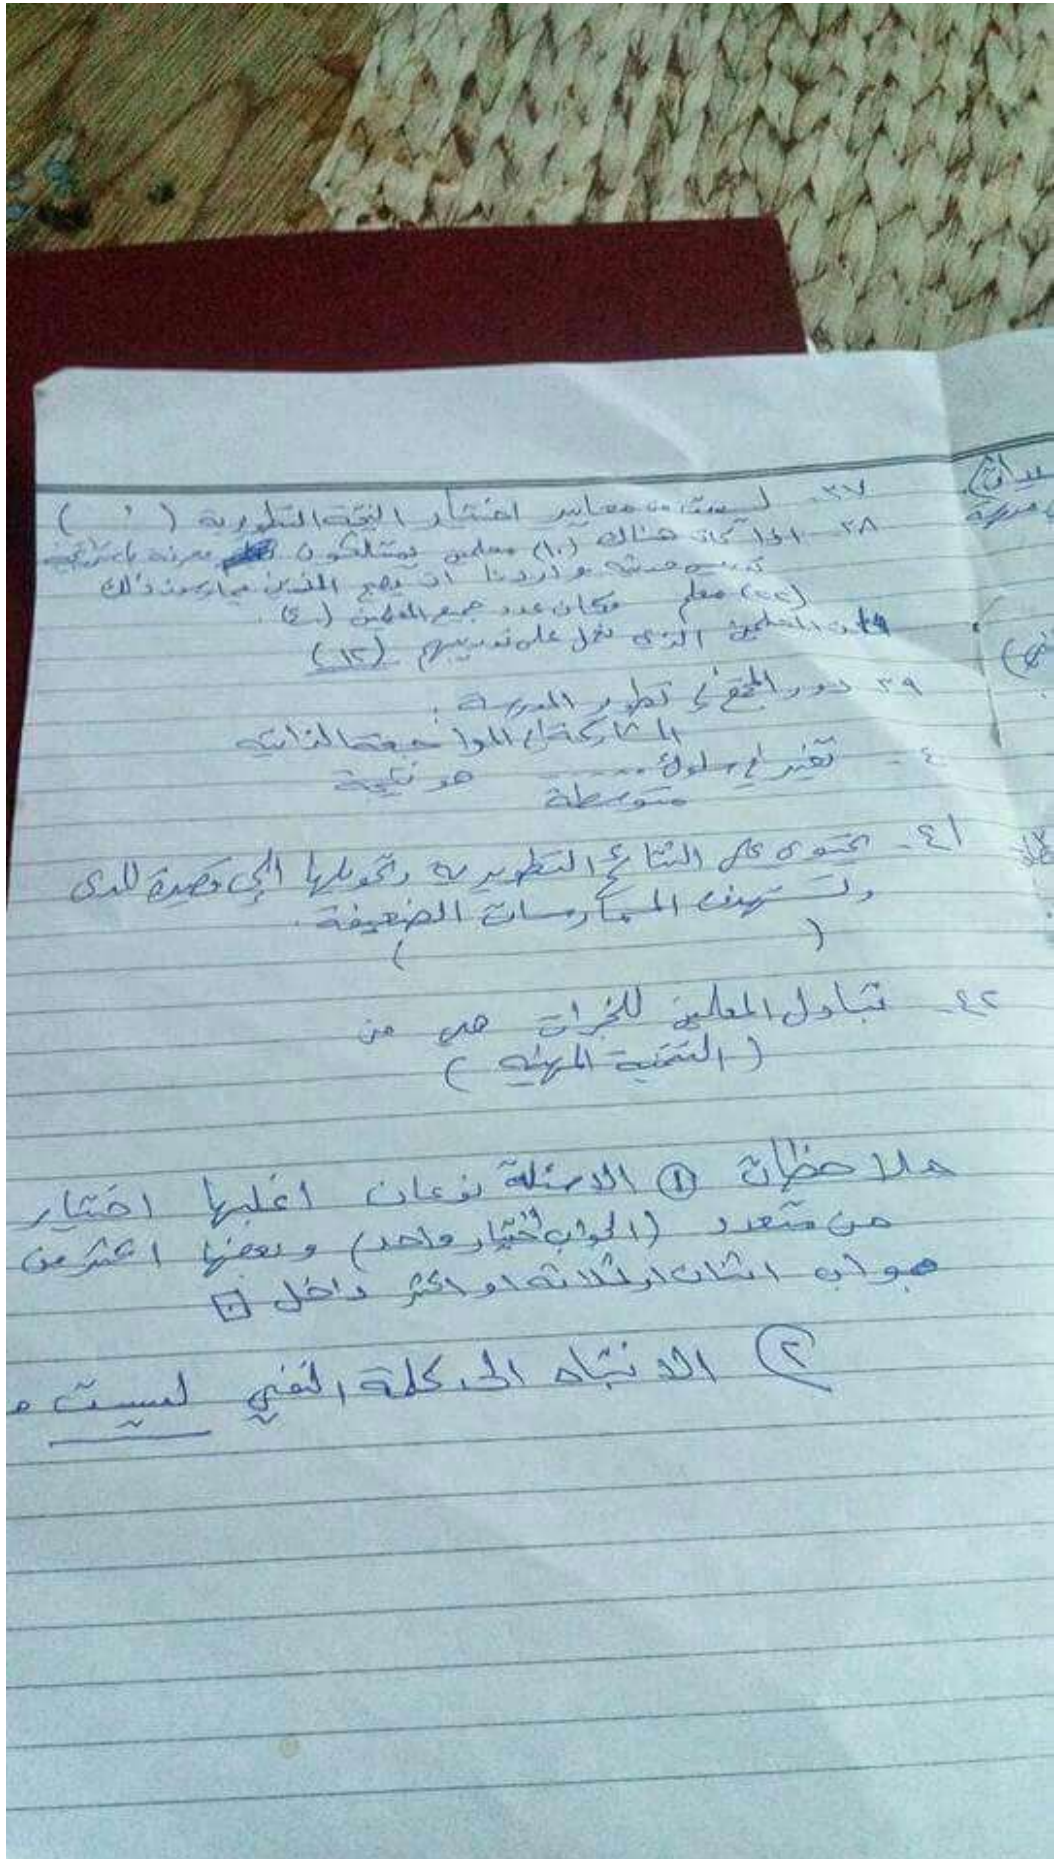 ٣٧- ليست من معايير اختيار النتيجة التطويرية (  )
٣٨- اذا كان هناك (١٠) معلمين يمتلكون معرفة باستراتيجية
تدريس حديثة واردنا ان يصبح الذين يمارسون ذلك
(٢٢) معلم وكان عدد جميع المعلمين (٤٠).
المعلمين الذي نعمل على تدريبهم (١٢)
٣٩ دور المجتمع في تطوير المدرسة :
المشاركة في المراجعة الذاتية
٤٠- تغير في سلوك ...... هو نتيجة
متوسطة
٤١- يحتوي على النتائج التطويرية وتحويلها الى قصيرة المدى
وتستهدف الممارسات الضعيفة .
(  )
٤٢- تبادل المعلمين للخبرات هي من
(التنمية المهنية)
ملاحظات ① الاسئلة نوعان اغلبها اختيار
من متعدد (الجواب اختيار واحد) وبعضها اكثر من
جواب اثنان او ثلاثة او اكثر داخل
② الانتباه الى كلمة النفي ليست